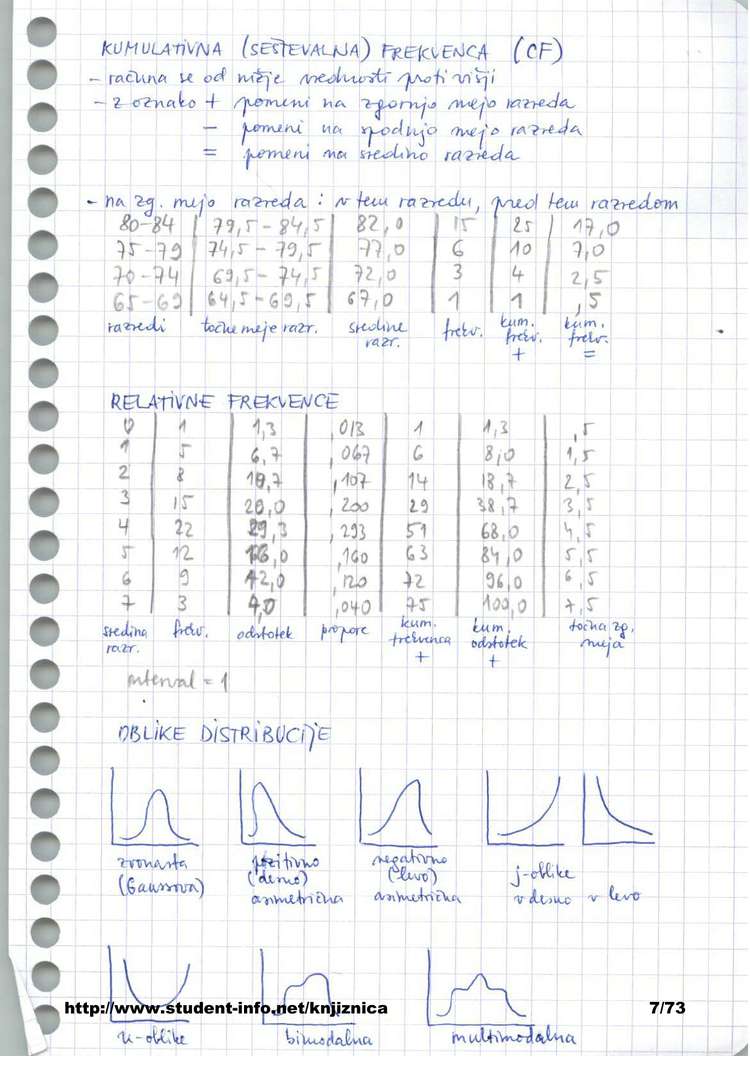 KUMULATIVNA (SEŠTEVALNA) FREKVENCA (CF)
- računa se od nižje vrednosti proti višji
- z oznako + pomeni na zgornjo mejo razreda
- pomeni na spodnjo mejo razreda
= pomeni na sredino razreda
- na zg. mejo razreda : v tem razredu, pred tem razredom
80-84 79,5-84,5 82,0 15 25 17,0
75-79 74,5-79,5 77,0 6 10 7,0
70-74 69,5-74,5 72,0 3 4 2,5
65-69 64,5-69,5 67,0 1 1 ,5
razredi točne meje razr. sredine razr. frekv. kum. frekv. + kum. frekv. =
RELATIVNE FREKVENCE
0 1 1,3 ,013 1 1,3 ,5
1 5 6,7 ,067 6 8,0 1,5
2 8 10,7 ,107 14 18,7 2,5
3 15 20,0 ,200 29 38,7 3,5
4 22 29,3 ,293 51 68,0 4,5
5 12 16,0 ,160 63 84,0 5,5
6 9 12,0 ,120 72 96,0 6,5
7 3 4,0 ,040 75 100,0 7,5
sredina razr. frekv. odstotek proporc kum. frekvenca + kum. odstotek + točna zg. meja
interval = 1
OBLIKE DISTRIBUCIJE
zvonasta (Gaussova)
pozitivno (desno) asimetrična
negativno (levo) asimetrična
j-oblike
v desno v levo
u-oblike
bimodalna
multimodalna
http://www.student-info.net/knjiznica 7/73